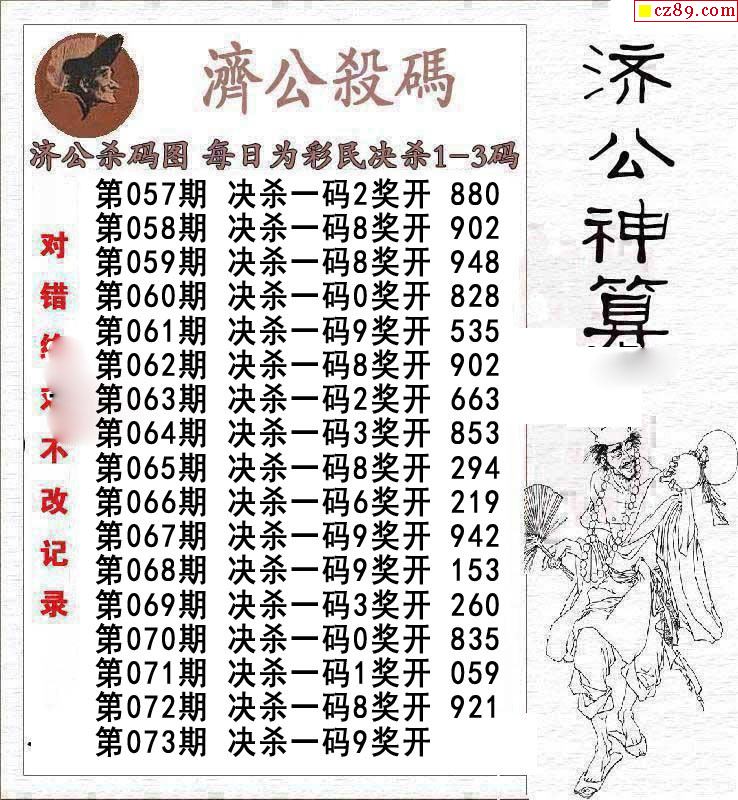 cz89.com
濟公殺碼
济公杀码图 每日为彩民决杀1-3码
第057期 决杀一码2奖开 880
第058期 决杀一码8奖开 902
第059期 决杀一码8奖开 948
第060期 决杀一码0奖开 828
第061期 决杀一码9奖开 535
第062期 决杀一码8奖开 902
第063期 决杀一码2奖开 663
第064期 决杀一码3奖开 853
第065期 决杀一码8奖开 294
第066期 决杀一码6奖开 219
第067期 决杀一码9奖开 942
第068期 决杀一码9奖开 153
第069期 决杀一码3奖开 260
第070期 决杀一码0奖开 835
第071期 决杀一码1奖开 059
第072期 决杀一码8奖开 921
第073期 决杀一码9奖开
对错不改记录
济公神算